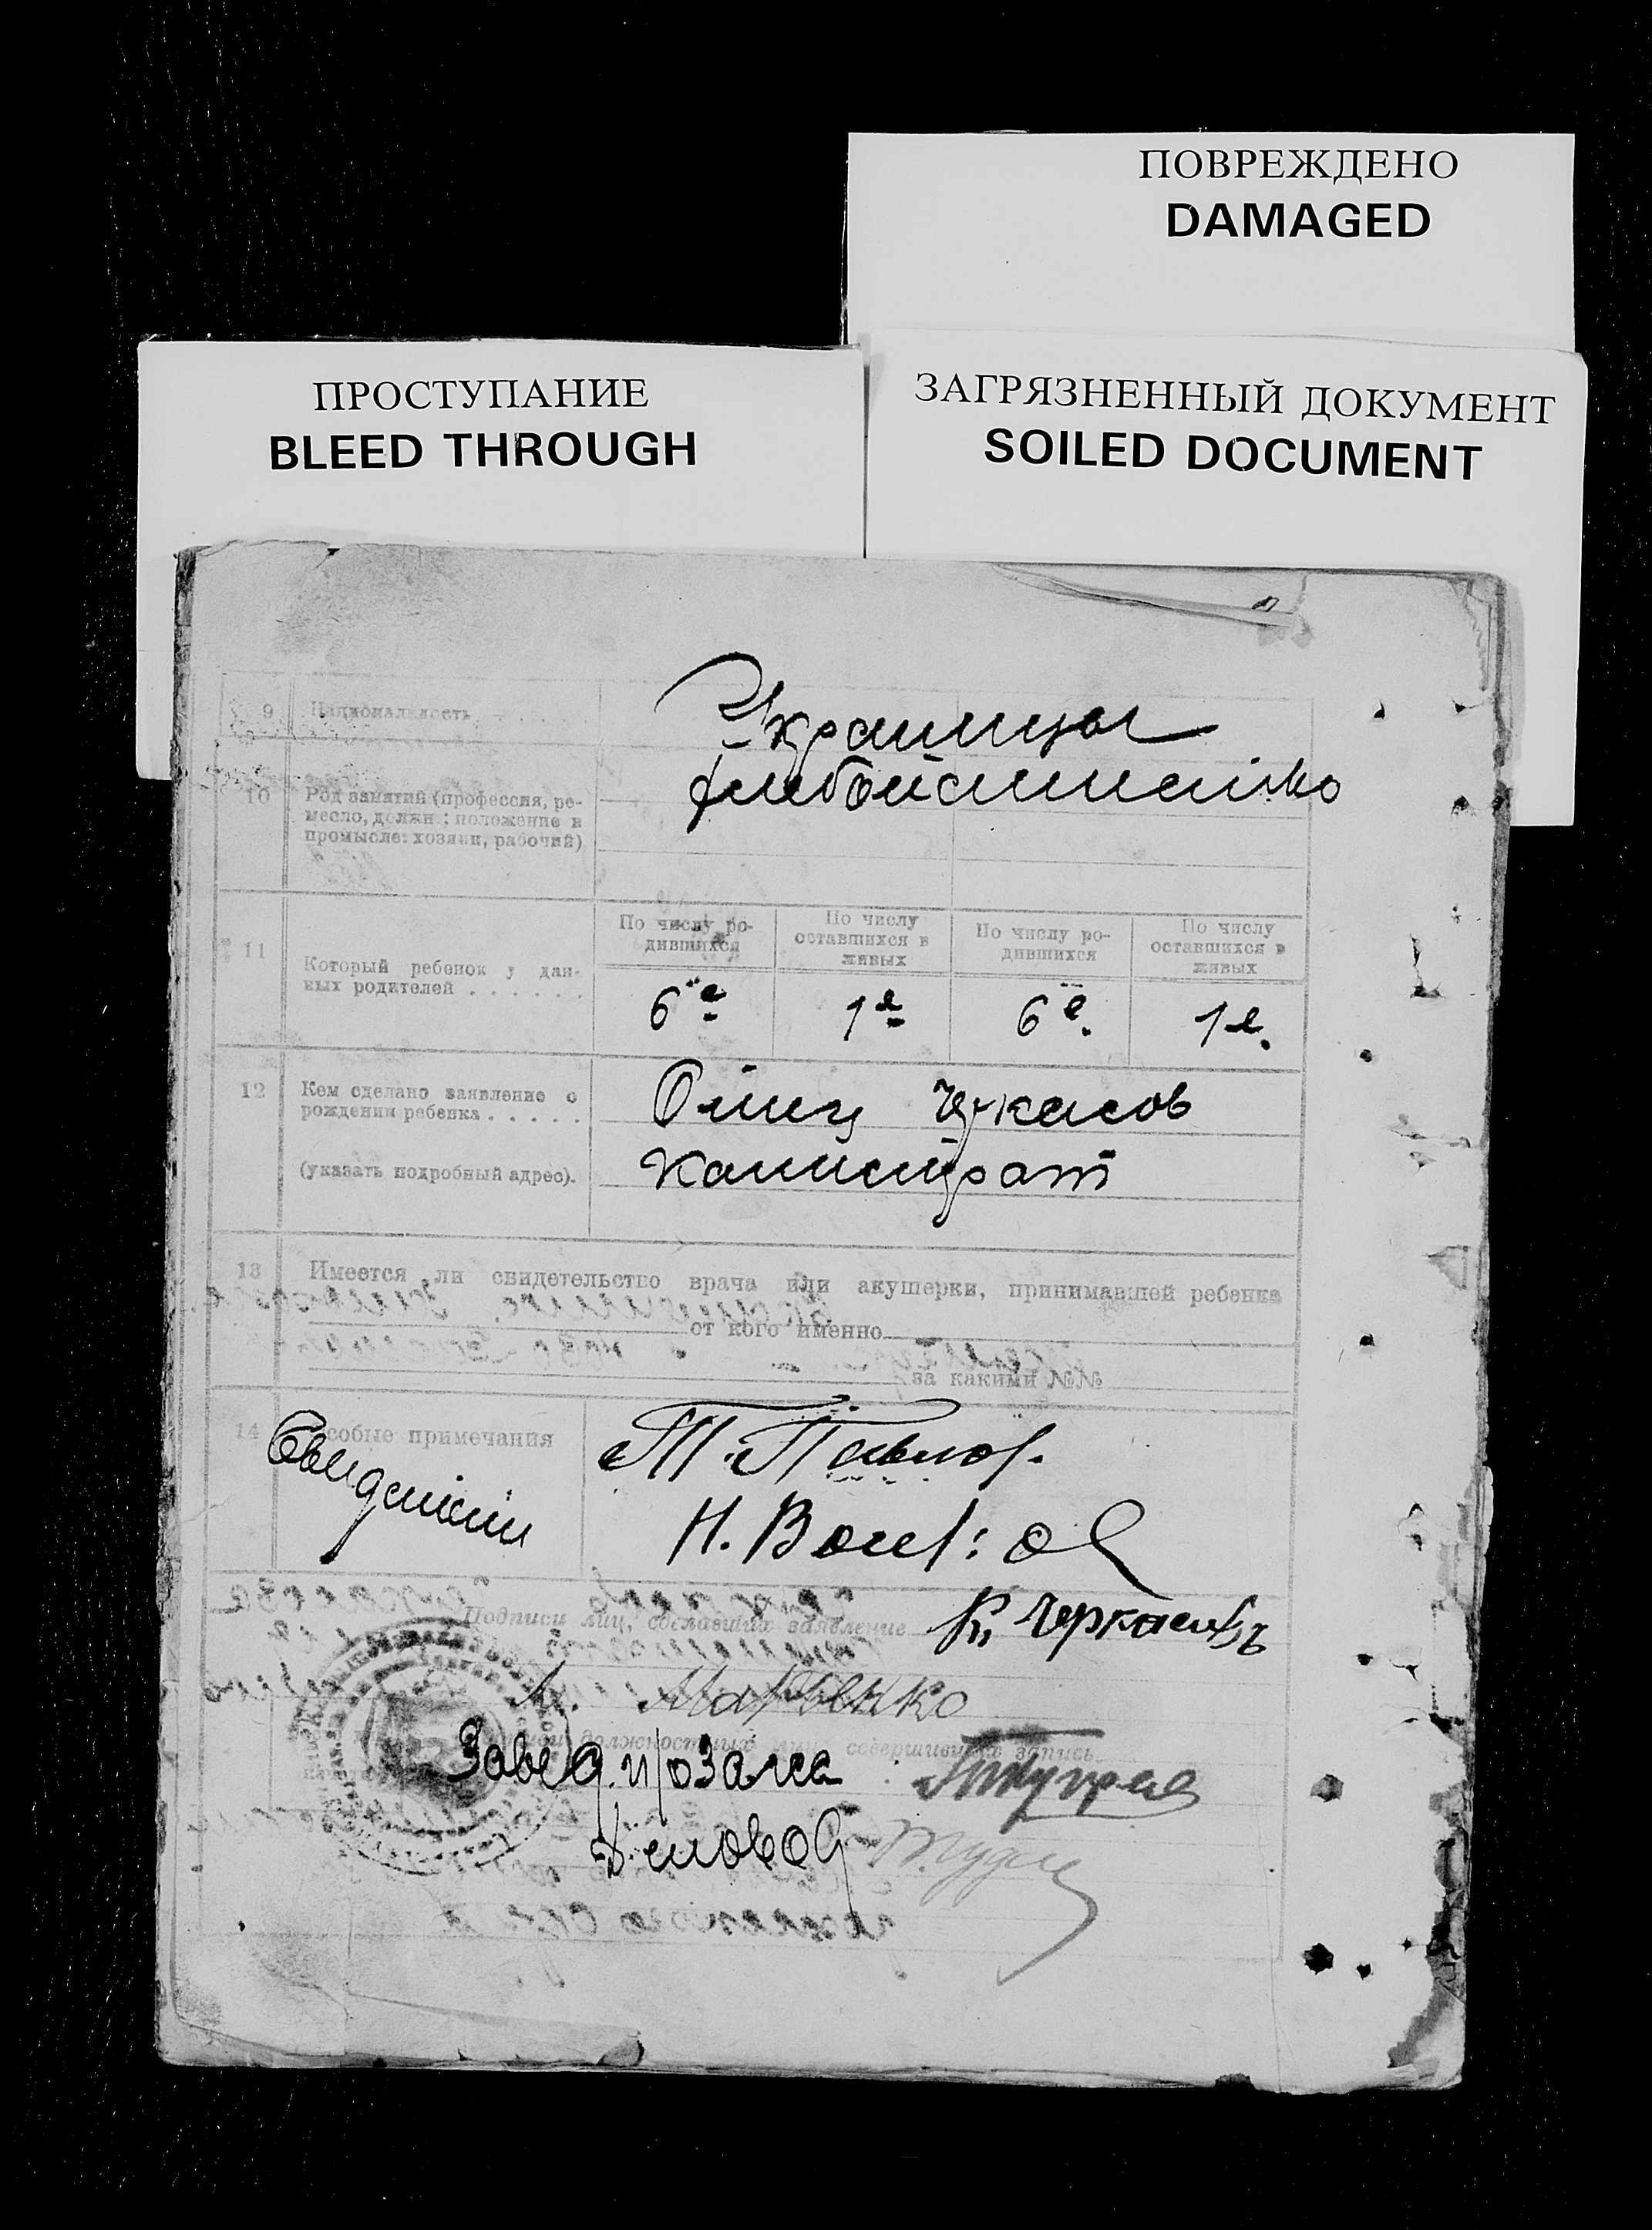 ПОВРЕЖДЕНО
DAMAGED
ПРОСТУПАНИЕ
BLEED THROUGH
ЗАГРЯЗНЕННЫЙ ДОКУМЕНТ
SOILED DOCUMENT
9 Национальность
Украинцы
10 Род занятий (профессия, ре-
месло, должн.: положение в
промысле: хозяин, рабочий)
хлебопашество
11 Который ребенок у дан-
ных родителей . . . . . .
По числу ро-
дившихся
По числу
оставшихся в
живых
По числу ро-
дившихся
По числу
оставшихся в
живых
6й 1й 6й 1й
12 Кем сделано заявление о
рождении ребенка . . . . .
(указать подробный адрес).
Отец Черкасов
Каллистрат
13 Имеется ли свидетельство врача или акушерки, принимавшей ребенка
от кого именно
за какими №№
14 Особые примечания
Свидетели
Т. Павлов.
Н. Волк
Подписи лиц, сделавших заявление К. Черкасовъ
должностных лиц, совершивших запись
Завед. п/о Загса
Деловод